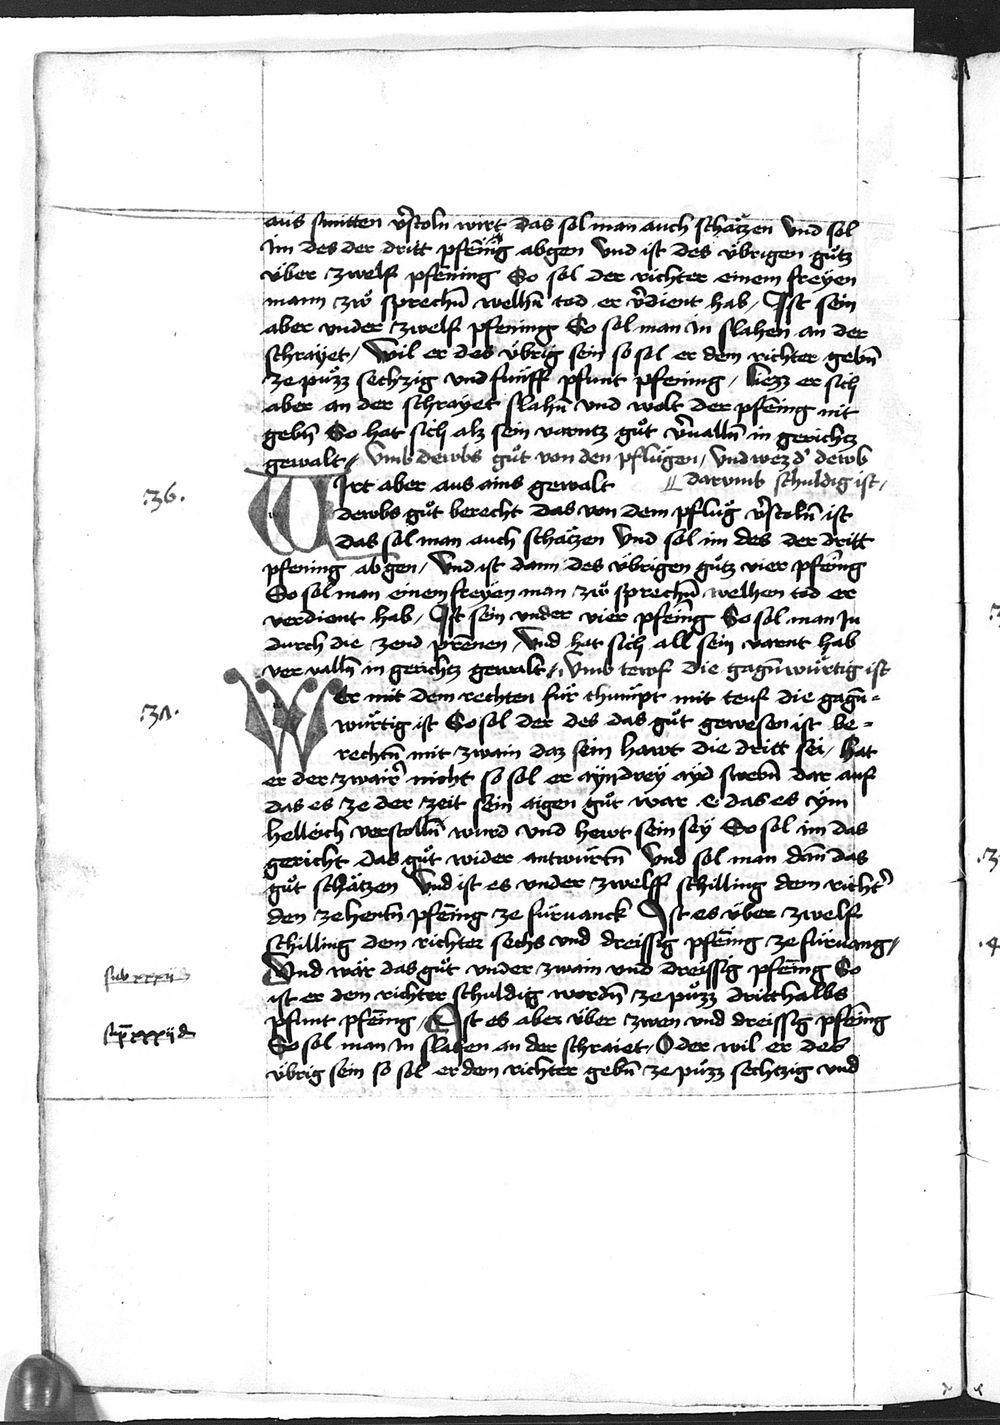 aus smitten v̾stoln wirt das sol man auch schätzen Und sol
Im des der dritt pfēning abgen Und ist des übrigen gůtz
über zwelf pfenning So sol der richter einem freyen
mann zů sprechn̄ welhn̄ tod er v̾dient hab / Ist sein
aber under zwelf pfening So sol man in slahen an der
schrayet / Wil er des übrig sein so sol er dem richter gebn̄
ze půzz sechzig und funff pfunt pfening / liezz er sich
aber an der schrayet slahn̄ und wolt der pfēning nit
gebn̄ So hat sich alz sein varntz gůt v̾ualln̄ in gerichtz
gewalt / Umb dewbs gůt von den pflůgen / und wez d̾ dewb
darumb schuldig ist /
.36.
Wirt aber aus ains gewalt
dewbs gůt berecht das von dem pflůg v̾stoln̄ ist
das sol man auch schätzen Und sol im des der dritt
pfening abgen / Und ist dann des übrigen gůtz vier pfēing
So sol man einem freyen man zů sprechn̄ welhen tod er
verdient hab / Ist sein under vier pfēing So sol man In
durch die zend prēnen / Und hat sich all sein varnt hab
ver ualln̄ in gerichtz gewalt / Umb tewf die gagn̄würtig ist
.37.
Wer mit dem rechten für chumpt mit teuf die gagn̄=
würtig ist So sol der des das gůt gewesen ist be=
rechtn̄ mit zwain daz sein hawt die dritt sei / Hat
er der zwair̾ nicht so sol er ayndrey ayd swebn̄ dar auf
das es ze der zeit sein aigen gůt war e das es ym
helleich verstolln̄ wurd und hewt sein sey So sol im das
gericht das gůt wider antwürtn̄ Und sol man dān das
gůt schätzen Und ist es under zwelff schilling dem richt̾
den zehentn̄ pfēing ze fürvanck Ist es über zwelf
schilling dem richter sechs und dreissig pfēing ze fürvang /
Und wär das gůt under zwain und dreissig pfēing So
sub xxxii d
ist er dem richter schuldig wordn̄ ze půzz dritthalbs
pfunt pfēing / Ist es aber über zwen und dreissig pfēing
sup̄ xxxij d
So sol man In slahen an der schraiet / Oder wil er des
übrig sein so sol er dem richter gebn̄ ze půzz sechtzig und